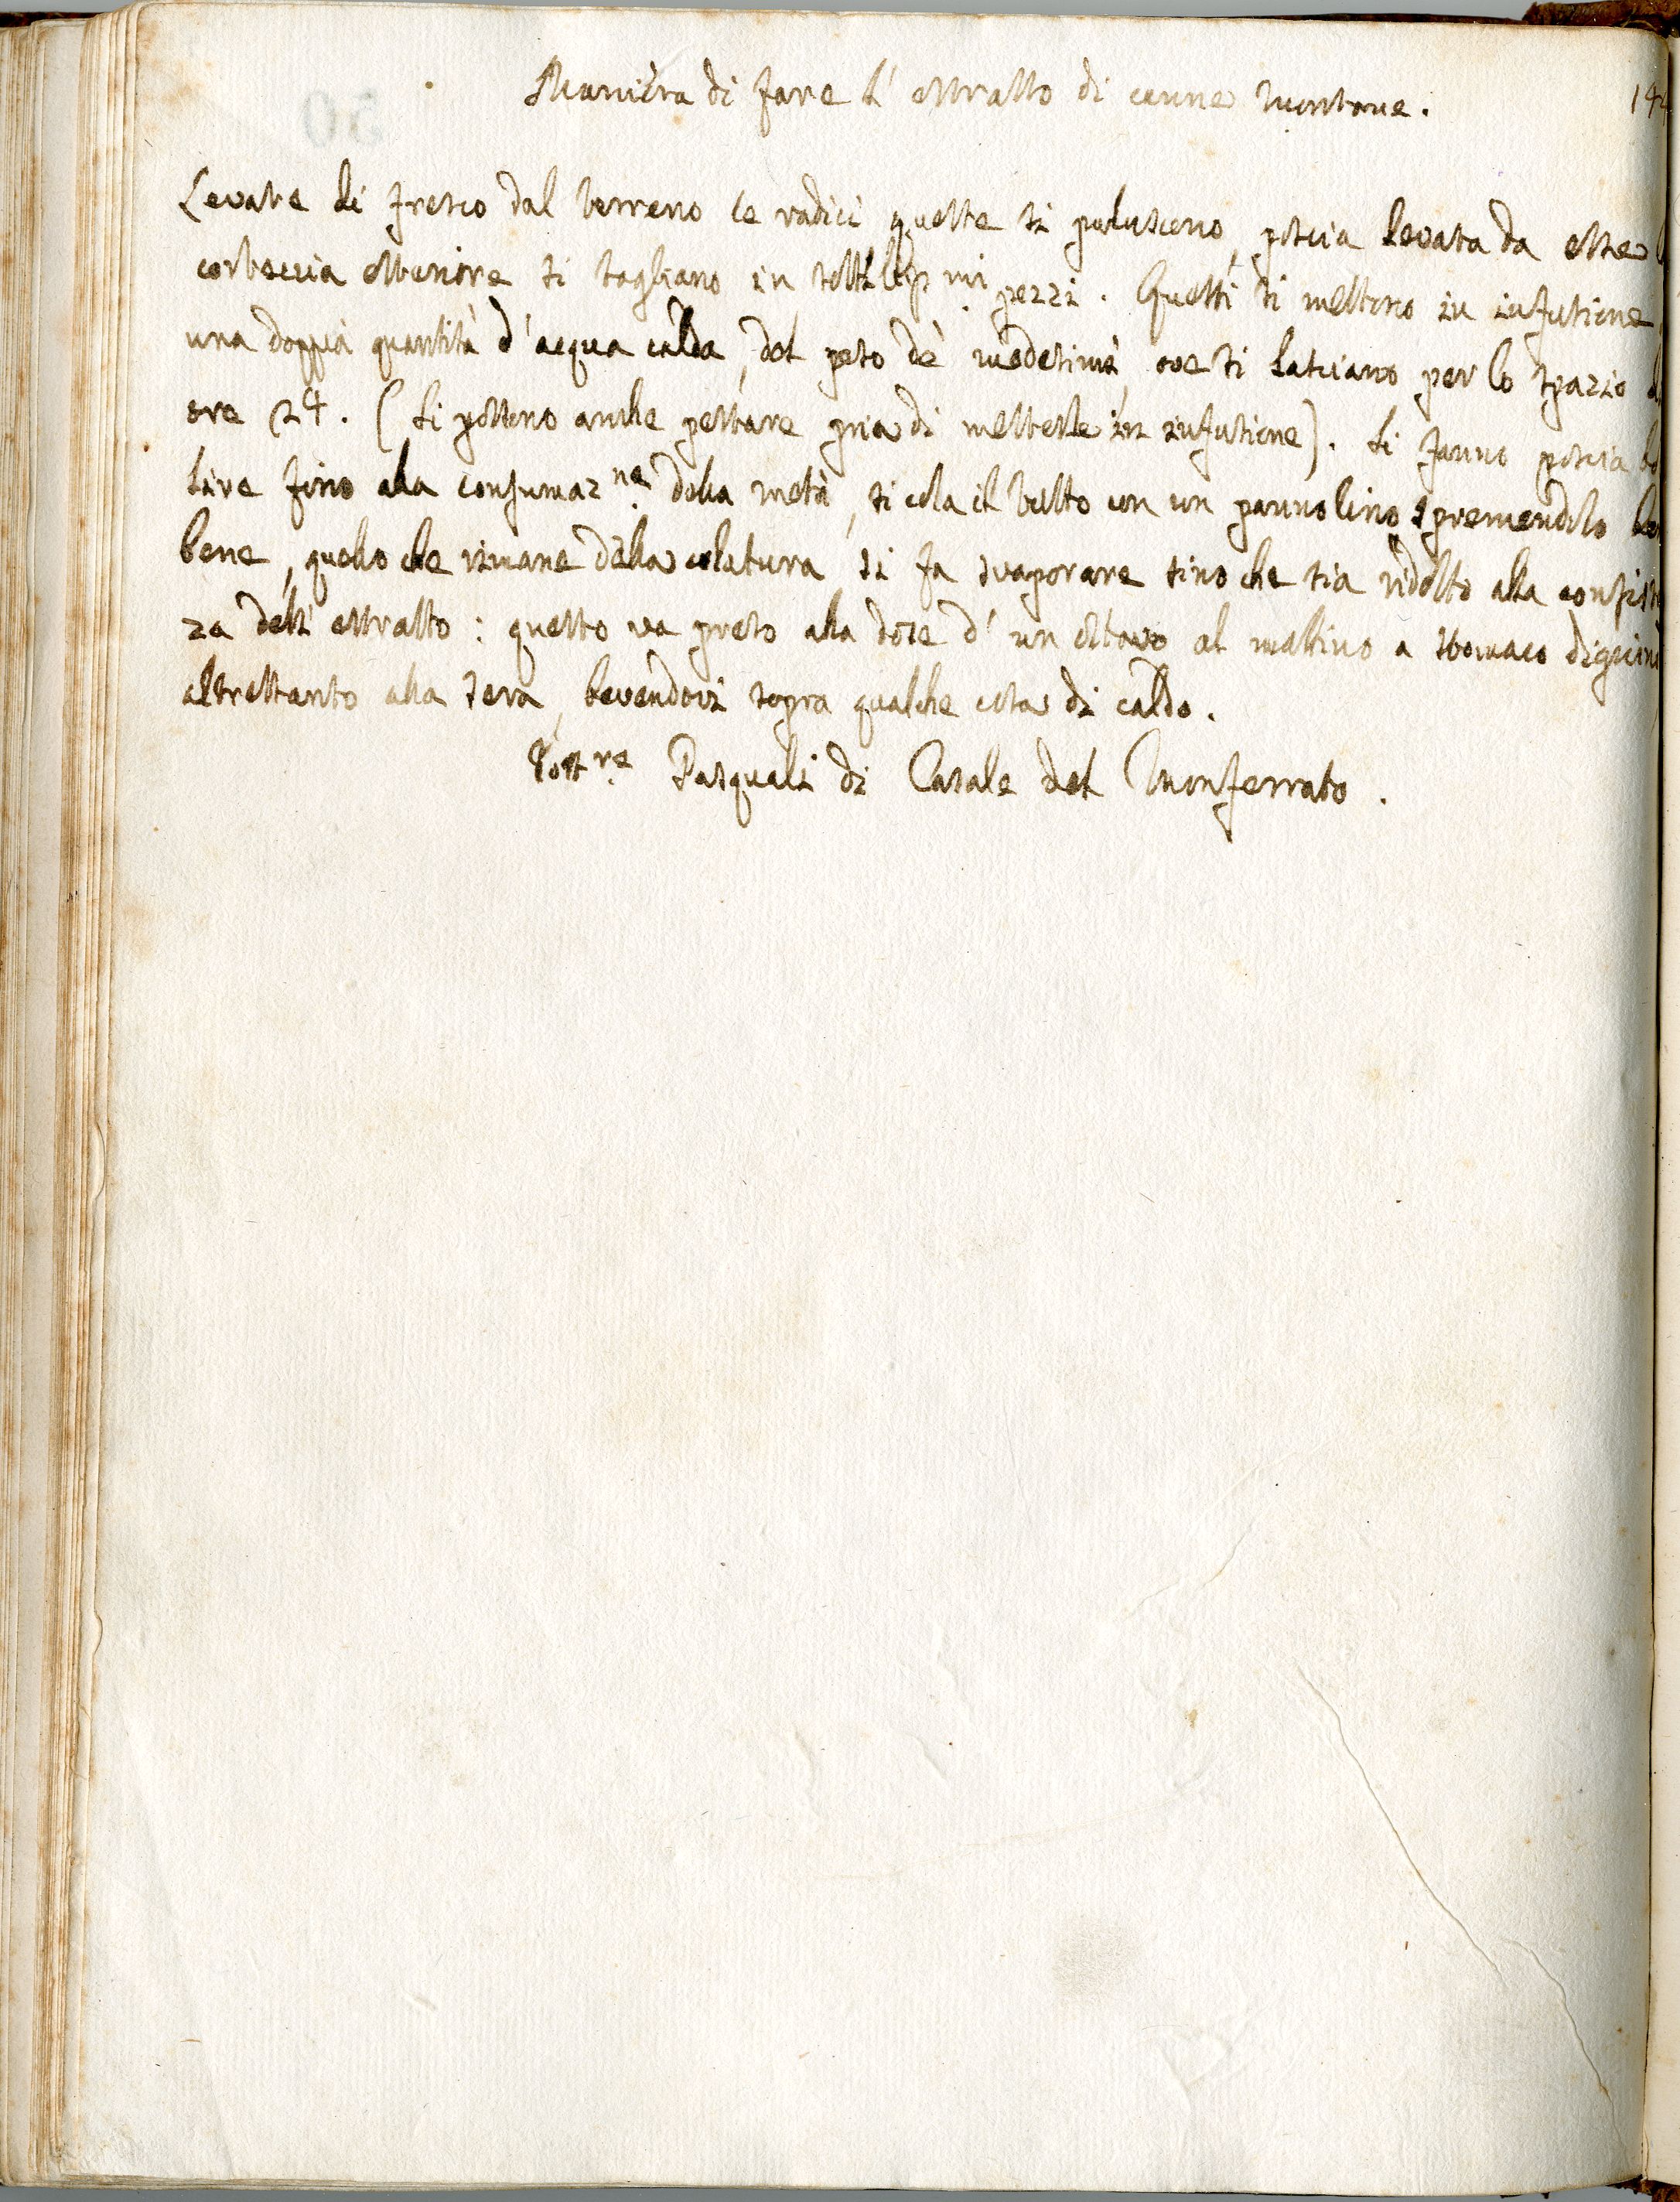 Maniera di fare l' estratto di canne montane.
Levate di fresco dal terreno le radici queste si puliscono, poscia levata da esse
corteccia esteriore si tagliano in sottiliss.mi pezzi. Questi si mettono in infusione
una doppia quantità d'acqua calda, del peso de' medesimi, ove si lasciano per lo spazio d
ore 24. (si possono anche pestare pria di metterle in infusione). Si fanno poscia bo
lire fino alla consumaz.ne della metà, si cola il tutto con un pannolino spremendolo be
bene, quello che rimane della colatura si fa svaporare sino che sia ridotto alla consist
za dell' estratto: questo va preso alla dose d' un ottavo al mattino a stomaco digiun
altrettanto alla sera, bevendovi sopra qualche cosa di caldo.
Dott.re Pasquali di Casale del Monferrato.